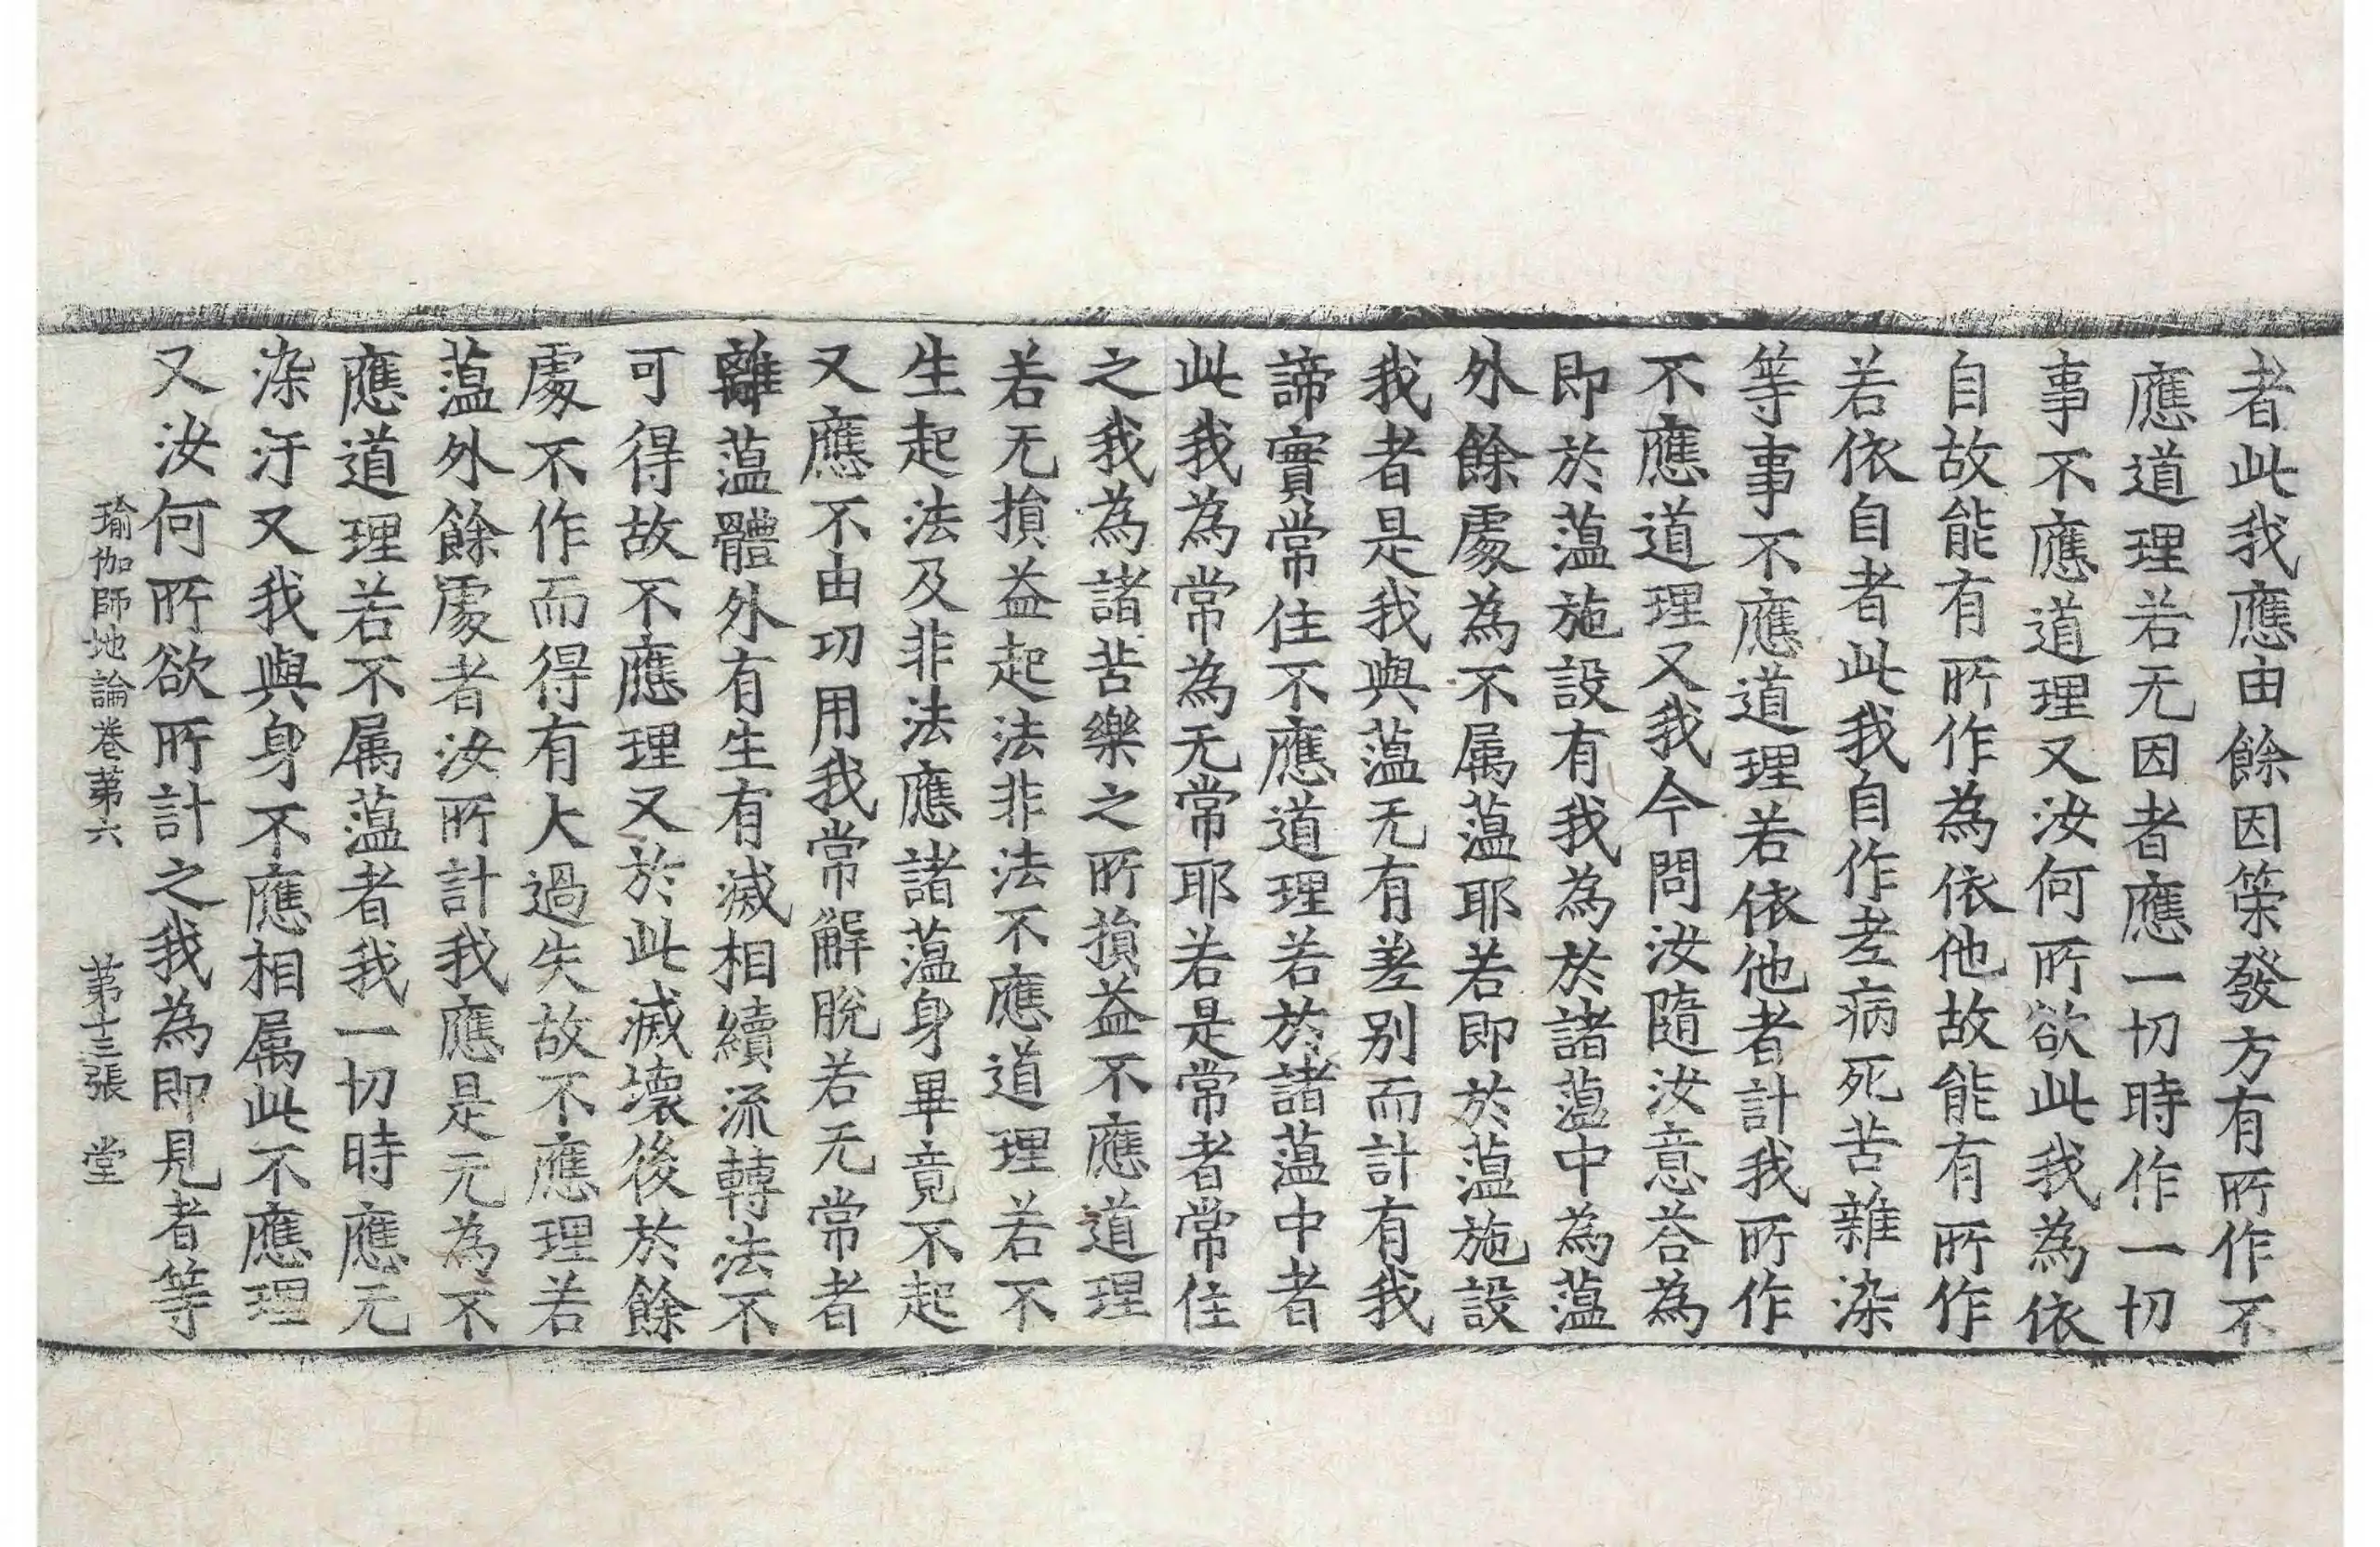 者此我應由餘因策發方有所作不
應道理若无因者應一切時作一切
事不應道理又汝何所欲此我為依
自故能有所作為依他故能有所作
若依自者此我自作老病死苦雜染
等事不應道理若依他者計我所作
不應道理又我今問汝隨汝意荅為
即於蘊施設有我為於諸蘊中為蘊
外餘處為不属蘊耶若即於蘊施設
我者是我與蘊无有差别而計有我
諦實常住不應道理若於諸蘊中者
此我為常為无常耶若是常者常住
之我為諸苦樂之所損益不應道理
若无損益起法非法不應道理若不
生起法及非法應諸蘊身畢竟不起
又應不由功用我常解脫若无常者
離蘊體外有生有滅相續流轉法不
可得故不應理又於此滅壞後於餘
處不作而得有大過失故不應理若
蘊外餘處者汝所計我應是无為不
應道理若不属蘊者我一切時應无
染汙又我與身不應相属此不應理
又汝何所欲所計之我為即見者等
瑜伽師地論卷第六 第十三張 堂